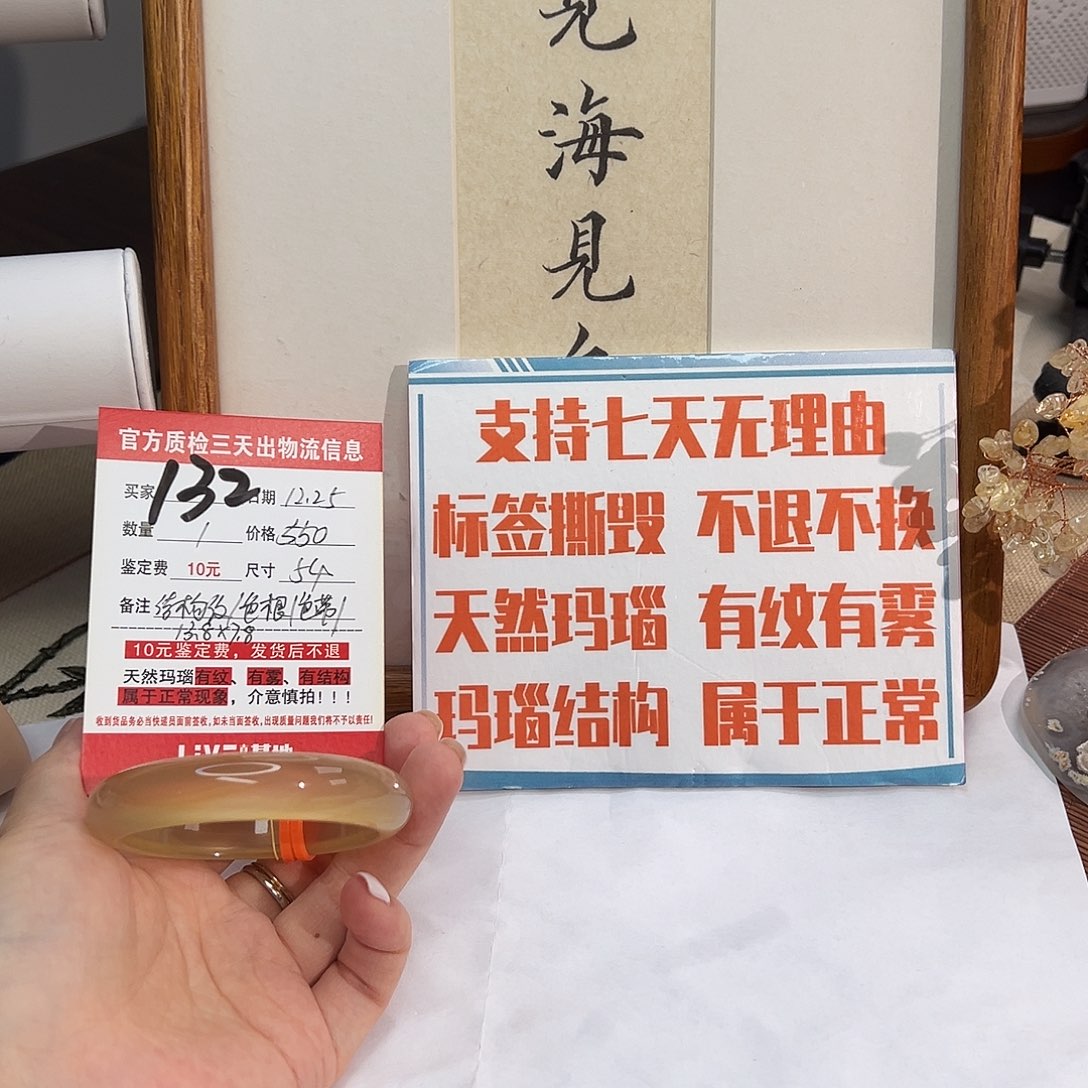 見
海
見
官方质检三天出物流信息
买家 132 日期 12.25
数量 1 价格 550
鉴定费 10元 尺寸 54
备注 结构纹/色根/色带/
13.8×7.8
10元鉴定费，发货后不退
天然玛瑙有纹、有雾、有结构
属于正常现象，介意慎拍！！！
收到货品务必当快递员面前签收，如未当面签收，出现质量问题我们将不予以责任！
支持七天无理由
标签撕毁 不退不换
天然玛瑙 有纹有雾
玛瑙结构 属于正常